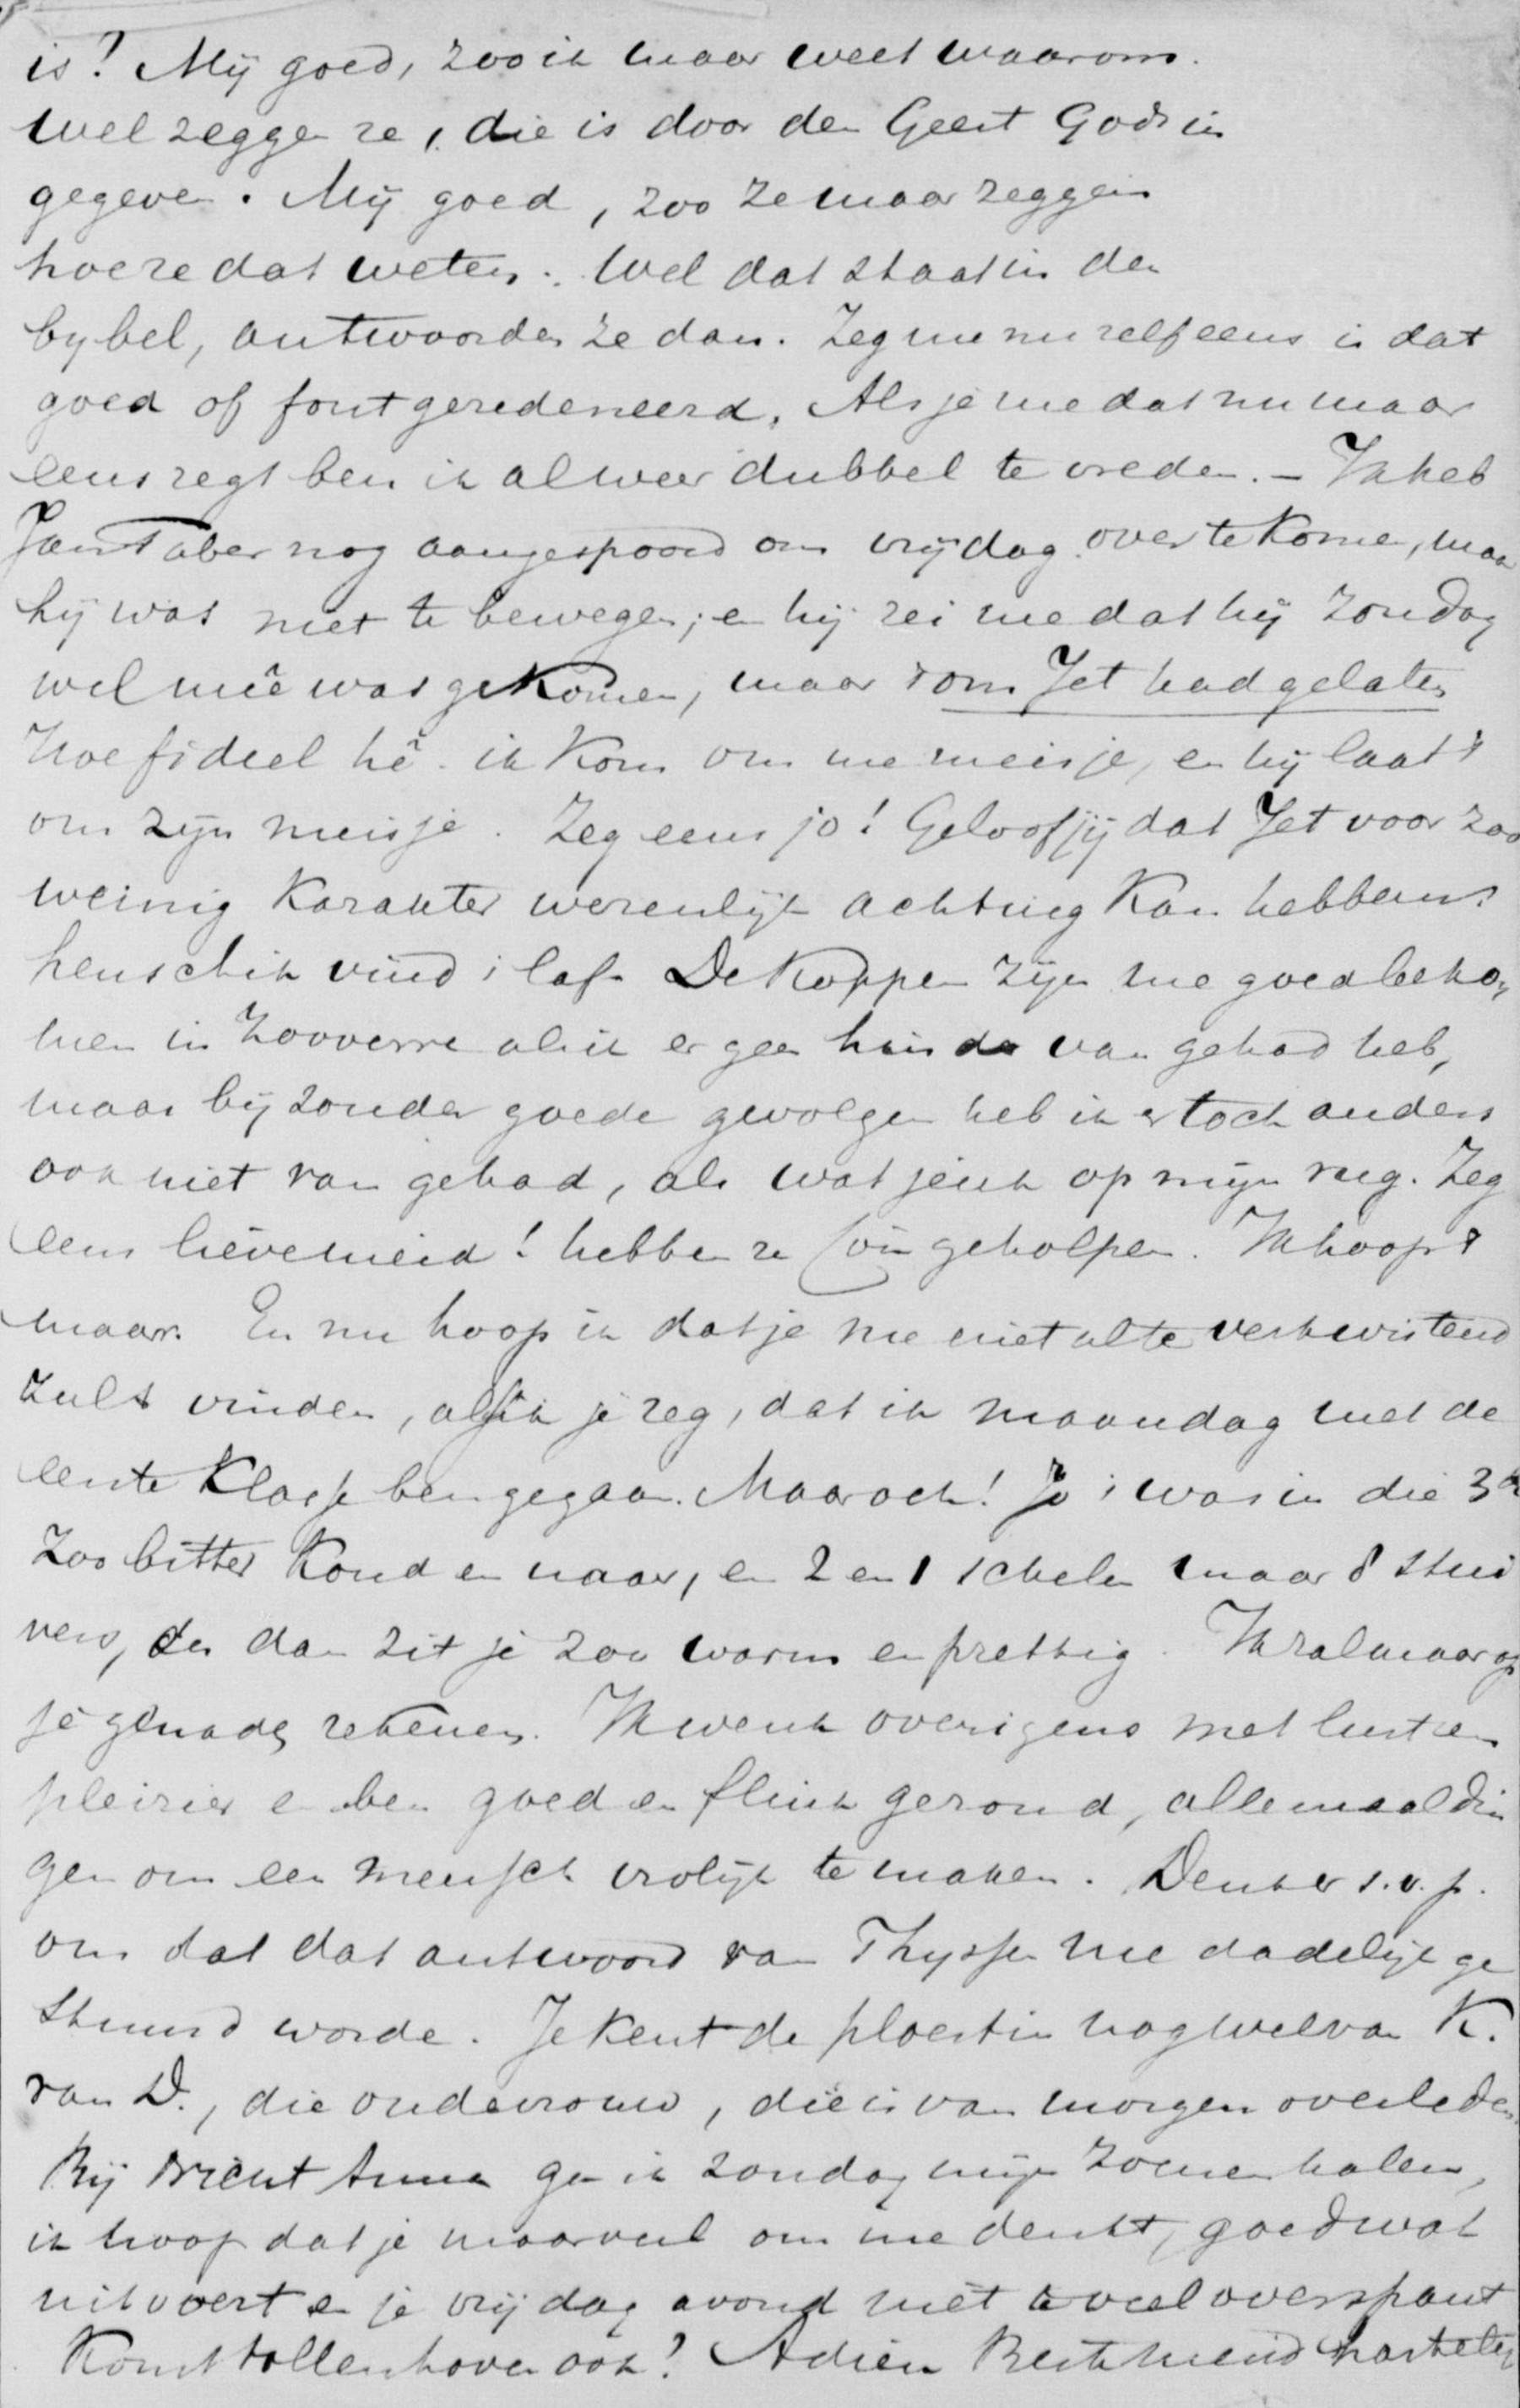 is? Mij goed, zoo ik maar weet waarom.
Wel zeggen ze, die is door den Geest Gods in
gegeven. Mij goed, zoo ze maar zeggen
hoe ze dat weten. Wel dat staat in den
bybel, antwoorden ze dan. Zeg me nu zelf eens is dat
goed of fout geredeneerd. Als je me dat nu maar
eens zegt ben ik alweer dubbel te vreden. – Ik heb
Jan Taber nog aangespoord om vrijdag over te komen, maar
hij was niet te bewegen; en hij zei me dat hij Zondag
wel meê was gekomen, maar 't om Jet had gelaten
Hoe fideel hê. ik kom om me meisje, en hij laat 't
om zijn meisje. Zeg eens jo! Geloof jij dat Jet voor zoo
weinig karakter wezenlijk achting kan hebben?
heusch ik vind 't laf. De koppen zijn me goed beko,,
men in zooverre als ik er geen hinder van gehad heb,
maar bijzonder goede gevolgen heb ik er toch anders
ook niet van gehad, als wat jeuk op mijn rug. Zeg
eens lieve meid! hebben ze jou geholpen. Ik hoop 't
maar. En nu hoop ik dat je me niet al te verkwistend
zult vinden, als ik je zeg, dat ik maandag met de
eerste klasse ben gegaan. Maar och! Jo 't was in die 3de
zoo bitter koud en naar, en 2 en 1 schelen maar 8 stui
vers, en dan zit je zoo warm en prettig. Ik zal maar op
je genade rekenen. Ik werk overigens met lust en
pleizier en ben goed en flink gezond, allemaal din
gen om een mensch vrolijk te maken. Denk er s.v.p.
om dat dat antwoord van Thyssen me dadelijk ge
stuurd worde. Je kent de ploertin nog wel van K.
van D., die oude vrouw, die is van morgen overleden.
Bij Anna ga ik zondag mijn zoenen halen,
ik hoop dat je maar veel om me denkt, goed wat
uitvoert en je vrijdag avond niet te veel overspant
Komt Tollenhoven ook? Adieu Beste meid hartelijk